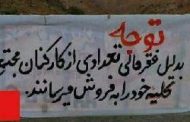 توجه
بدلیل فقر مالی تعدادی از کارکنان مجتمع
کلیه خود را به فروش میرسانند.